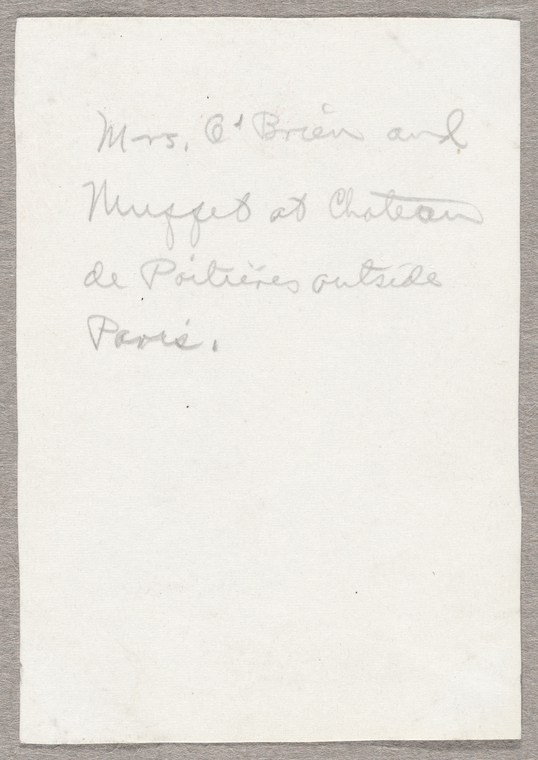 Mrs. O'Brien and
Muffet at Chateau
de Poitières outside
Paris.